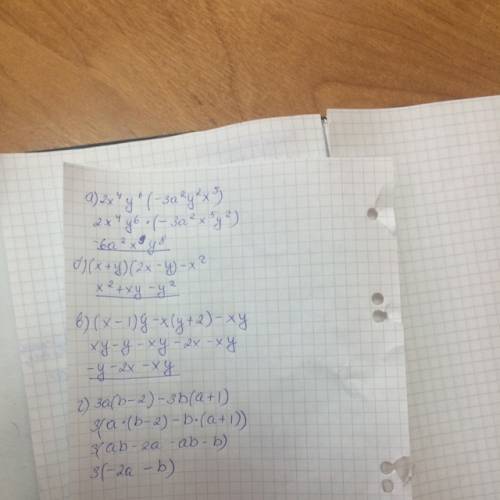 а) 2x⁴y⁶(-3a²y²x⁵)
2x⁴y⁶·(-3a²x⁵y²)
-6a²x⁹y⁸
б) (x+y)(2x-y)-x²
x²+xy-y²
в) (x-1)y-x(y+2)-xy
xy-y-xy-2x-xy
-y-2x-xy
г) 3a(b-2)-3b(a+1)
3(a·(b-2)-b·(a+1))
3(ab-2a-ab-b)
3(-2a-b)